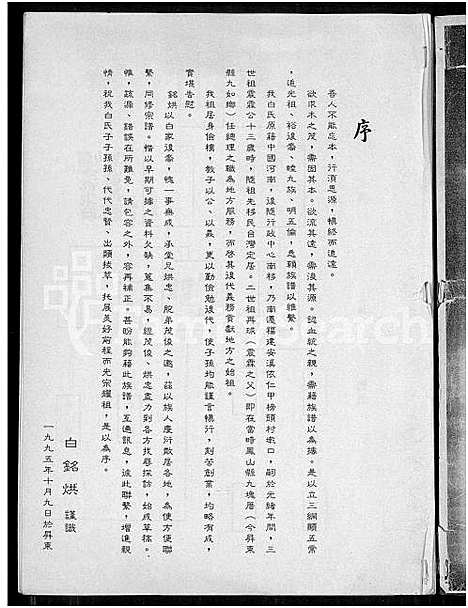 序
吾人不能忘本，行須思源，慎終而追遠。
欲求木之茂，需固其本。欲流其遠，需浚其源。認血統之親，需藉族譜以為據。是以立三綱顯五常
，追光祖、裕後裔、睦九族、明五倫，惠賴族譜以維繫。
我白氏原藉中國河南，後隨行政中心南移，乃南遷福建安溪依仁甲榜頭村塚口，嗣於光緒年間，三
世祖震霖公十三歲時，隨祖先移民台灣定居。二世祖再球（震霖之父）即在當時鳳山縣九塊厝（今屏東
縣九如鄉）任總理之職為地方服務，而啓其後代義務貢獻地方之始祖。
我祖居身儉樸，教子以公、以義，更以勤儉勉後代，使子孫均能謹言慎行，刻苦創業，均略有成，
實堪告慰。
銘烘以白家後裔，愧一事無成，承堂兄烘忠、舵弟茂俊之邀，茲以族人慶衍散居各地，為使方便聯
繫，同修宗譜。惜以早期可據之資料欠缺，蒐集不易，經茂俊、烘忠盡力到各方找尋探訪，始成草稿。
惟，疏漏、錯誤在所難免，請包容之外，容再補正。甚盼能夠藉此族譜，互通訊息，彼此聯繫，增進親
情，祝我白氏子子孫孫、代代忠賢、出類拔萃，托展美好前程而光宗耀祖，是以為序。
白銘烘 謹識
一九九五年十月九日於屏東